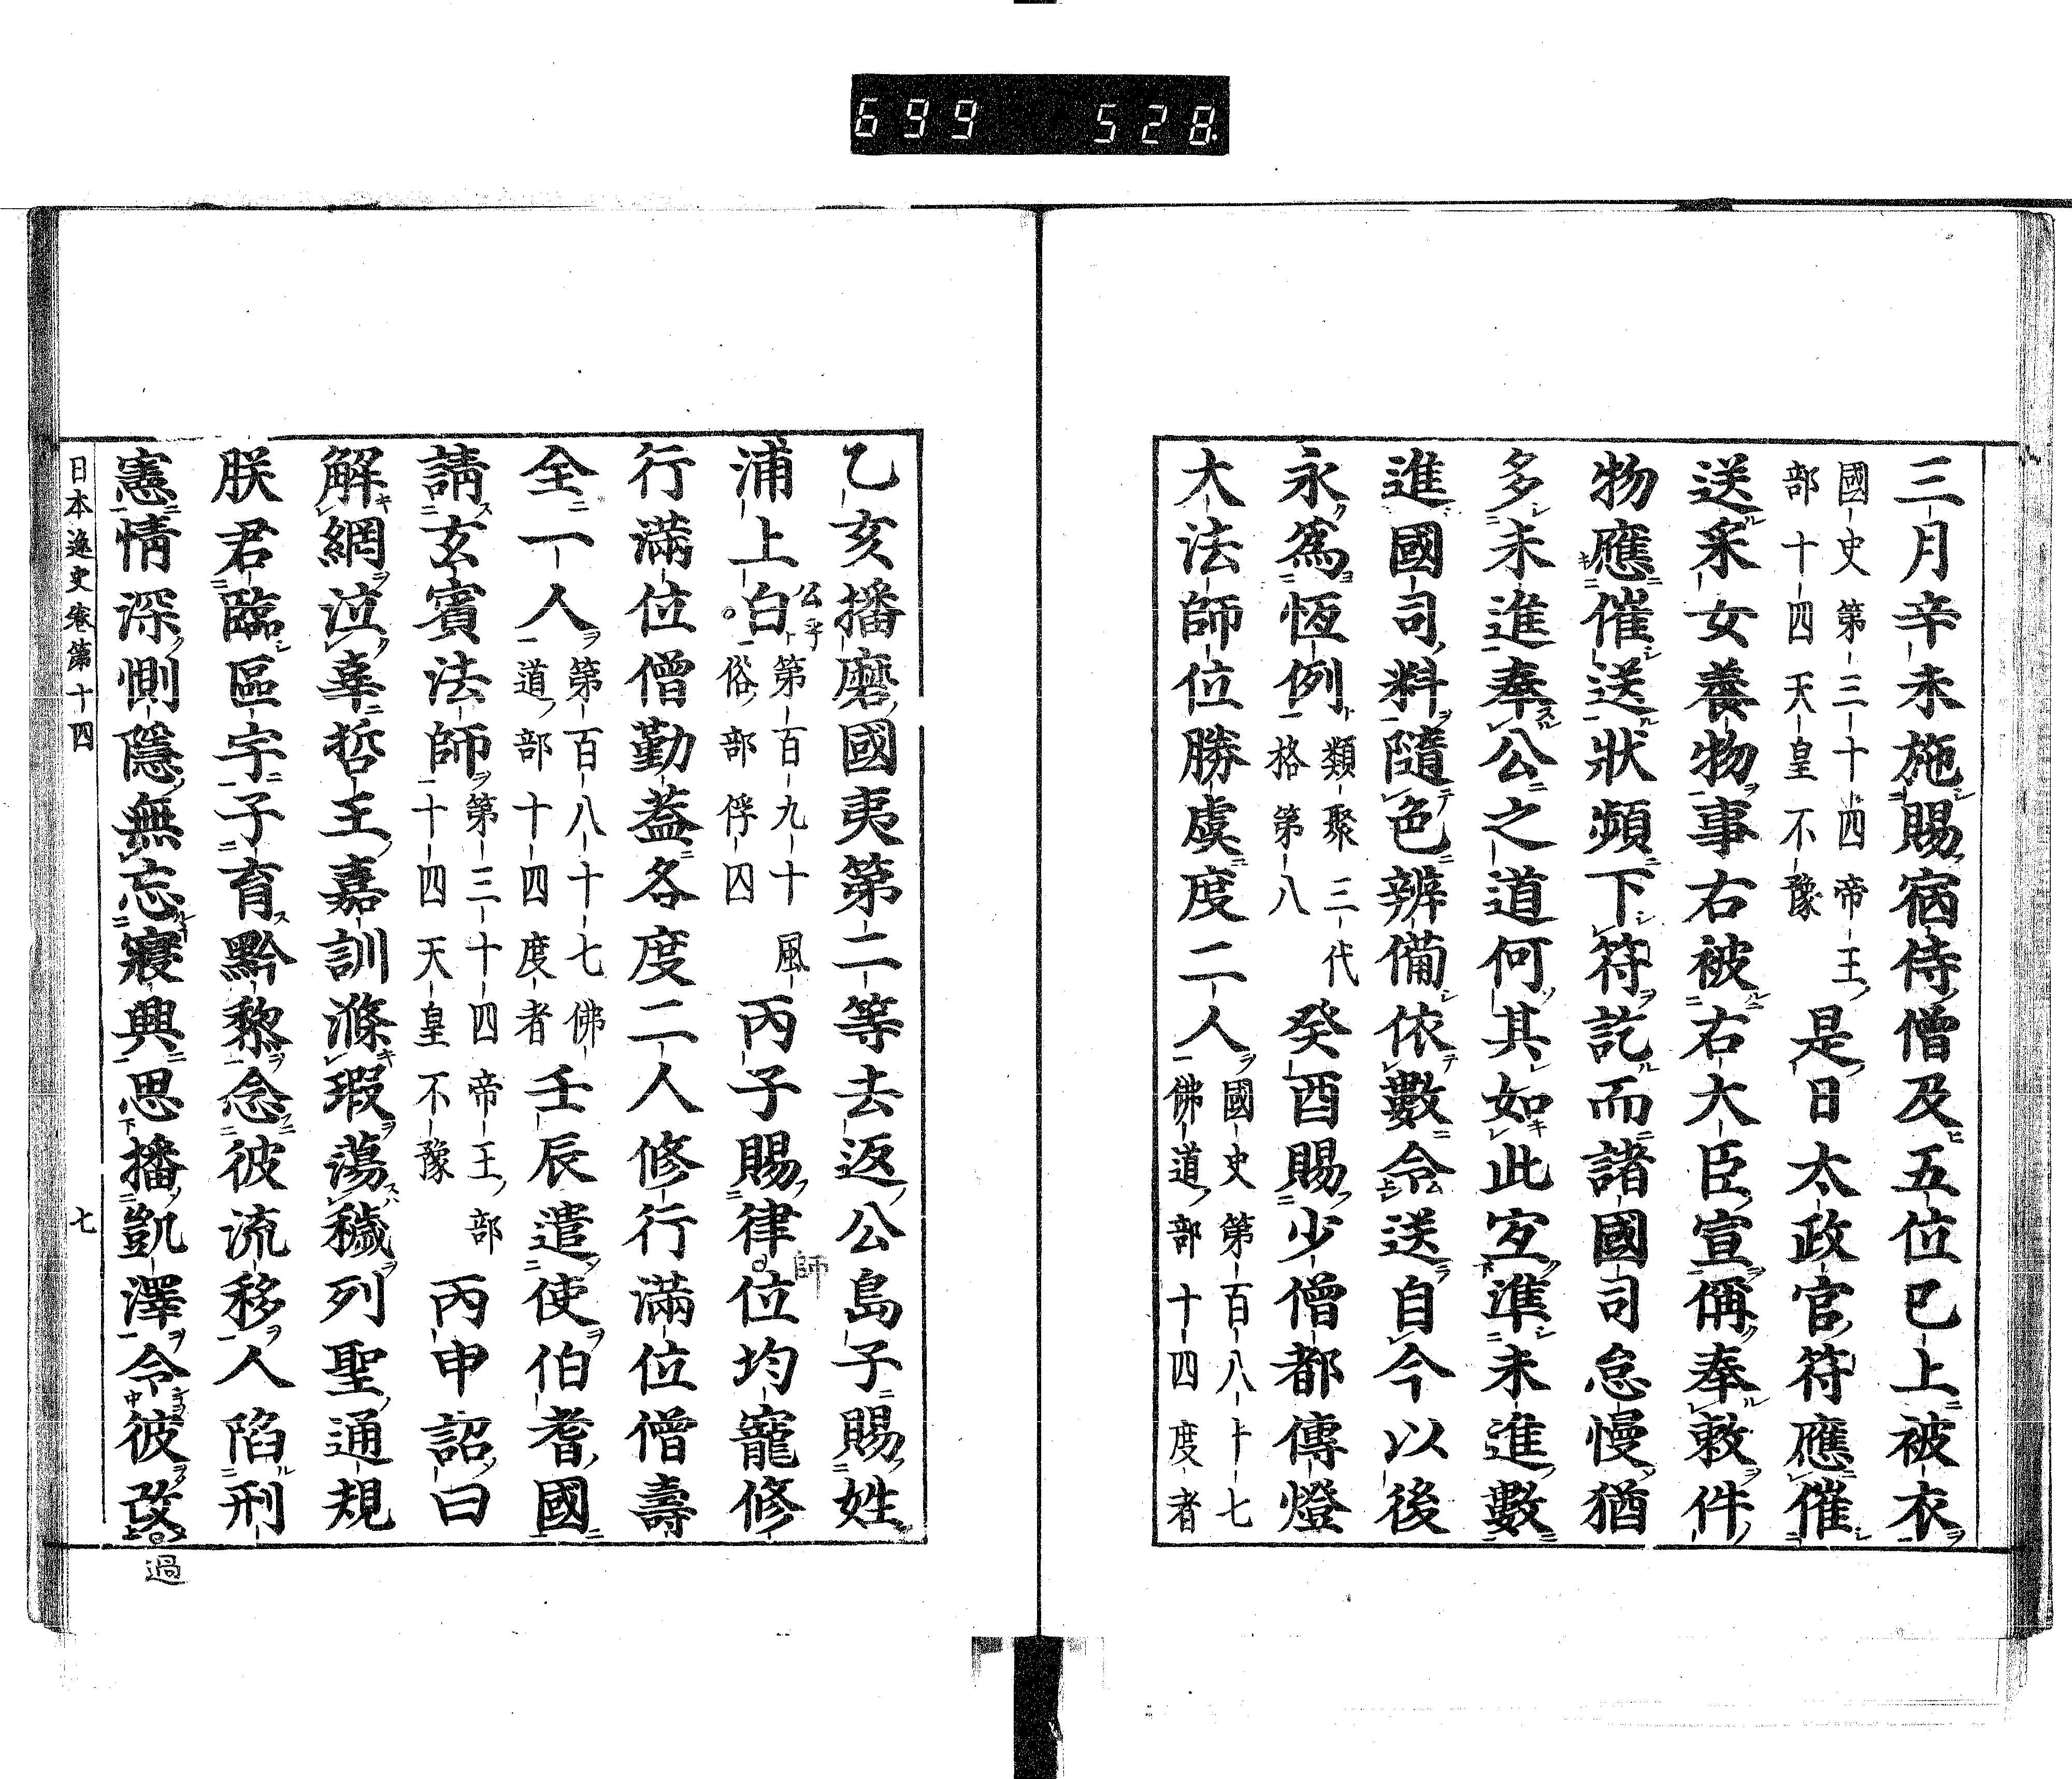 699 528
三月辛未施賜宿侍僧及五位已上被衣
國史第三十四帝王
部十四天皇不豫
是日太政官符應催
送采女養物事右被右大臣宣偁奉敕件
物應催送狀頻下符訖而諸國司怠慢猶
多未進奉公之道何其如此宜準未進數
進國司料隨色辨備依數令送自今以後
永爲恆例
類聚三代
格第八
癸酉賜少僧都傳燈
大法師位勝虞度二人
國史第百八十七
佛道部十四度者
乙亥播磨國夷第二等去返公島子賜姓
浦上白
公乎
第百九十風
俗部俘囚
丙子賜律位均寵修
師
行滿位僧勤蓋各度二人修行滿位僧壽
全一人
第百八十七佛
道部十四度者
壬辰遣使伯耆國
請玄賓法師
第三十四帝王部
十四天皇不豫
丙申詔曰
解網泣辜哲王嘉訓滌瑕蕩穢列聖通規
朕君臨區宇子育黔黎念彼流移人陷刑
憲情深惻隱無忘寢興思播凱澤令彼改
過
日本逸史卷第十四
七